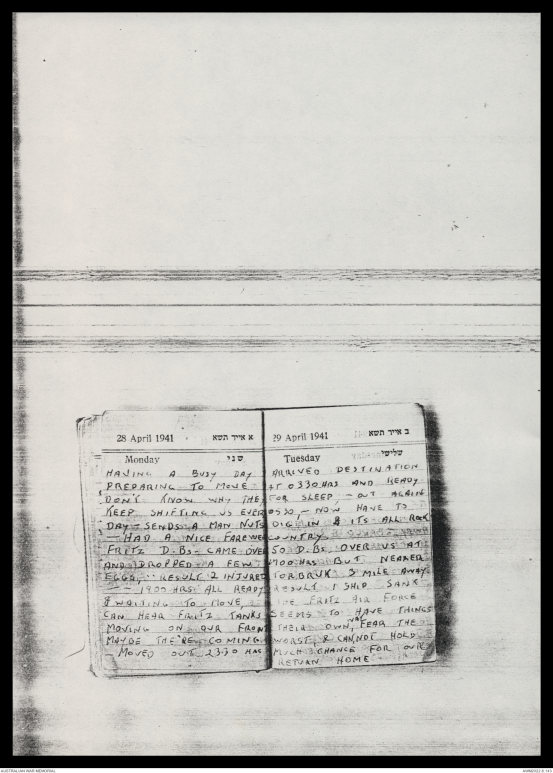 28 April 1941 א אייר תשא
Monday שני
HAVING A BUSY DAY
PREPARING TO MOVE
DON'T KNOW WHY THEY
KEEP SHIFTING US EVERY
DAY - SENDS A MAN NUTS
- HAD A NICE FAREWELL
FRITZ D.Bs. CAME OVER
AND DROPPED A FEW
EGGS, RESULT 2 INJURED
- 1900 HRS ALL READY
& WAITING TO MOVE,
CAN HEAR FRITZ TANKS
MOVING ON OUR FRONT
MAYBE THE'RE COMING
- MOVED OUT 2330 HRS
29 April 1941 ב אייר תשא
Tuesday שלישי
ARRIVED DESTINATION
AT 0330 HRS AND READY
FOR SLEEP, - OUT AGAIN
0530, - NOW HAVE TO
DIG IN & ITS ALL ROCK
COUNTRY
50 D.Bs. OVER US AT
HRS BUT NEARER
TORBRUK 3 MILE AWAY
RESULT 1 SHIP SANK
THE FRITZ AIR FORCE
SEEMS TO HAVE THINGS
THEIR OWN WAY FEAR THE
WORST, & CANNOT HOLD
MUCH CHANCE FOR OUR
RETURN HOME
AUSTRALIAN WAR MEMORIAL